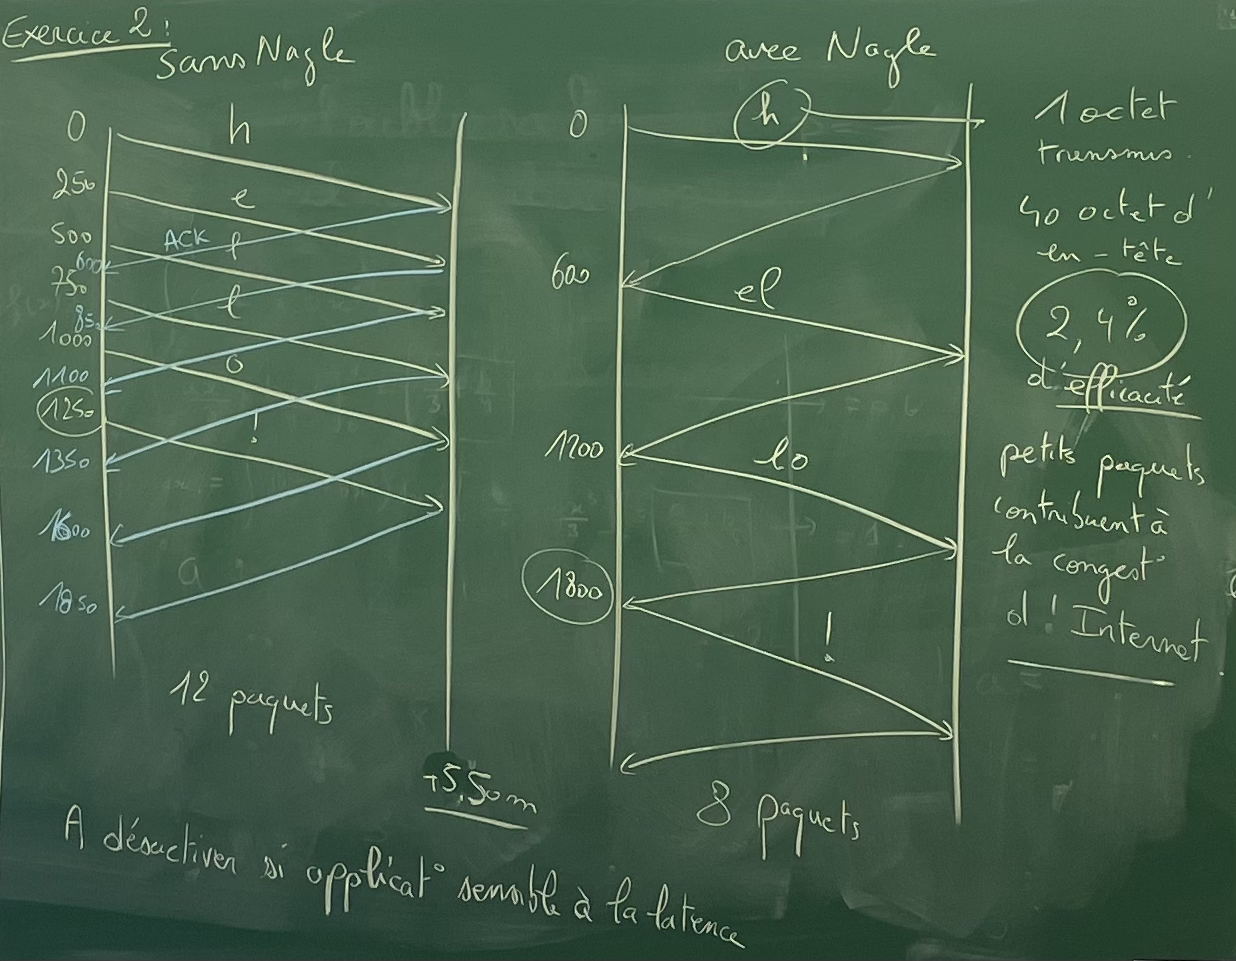 Exercice 2 :
Sans Nagle
0
h
250
e
500
ACK
l
600
750
l
85
1000
o
1100
1250
!
1350
1600
1850
12 paquets
+5,50m
avec Nagle
0
h
600
el
1200
lo
1800
!
8 paquets
1 octet
transmis.
40 octet d'
en-tête
2,4%
d'efficacité
petits paquets
contribuent à
la congest°
d'Internet
A désactiver si applicat° sensible à la latence